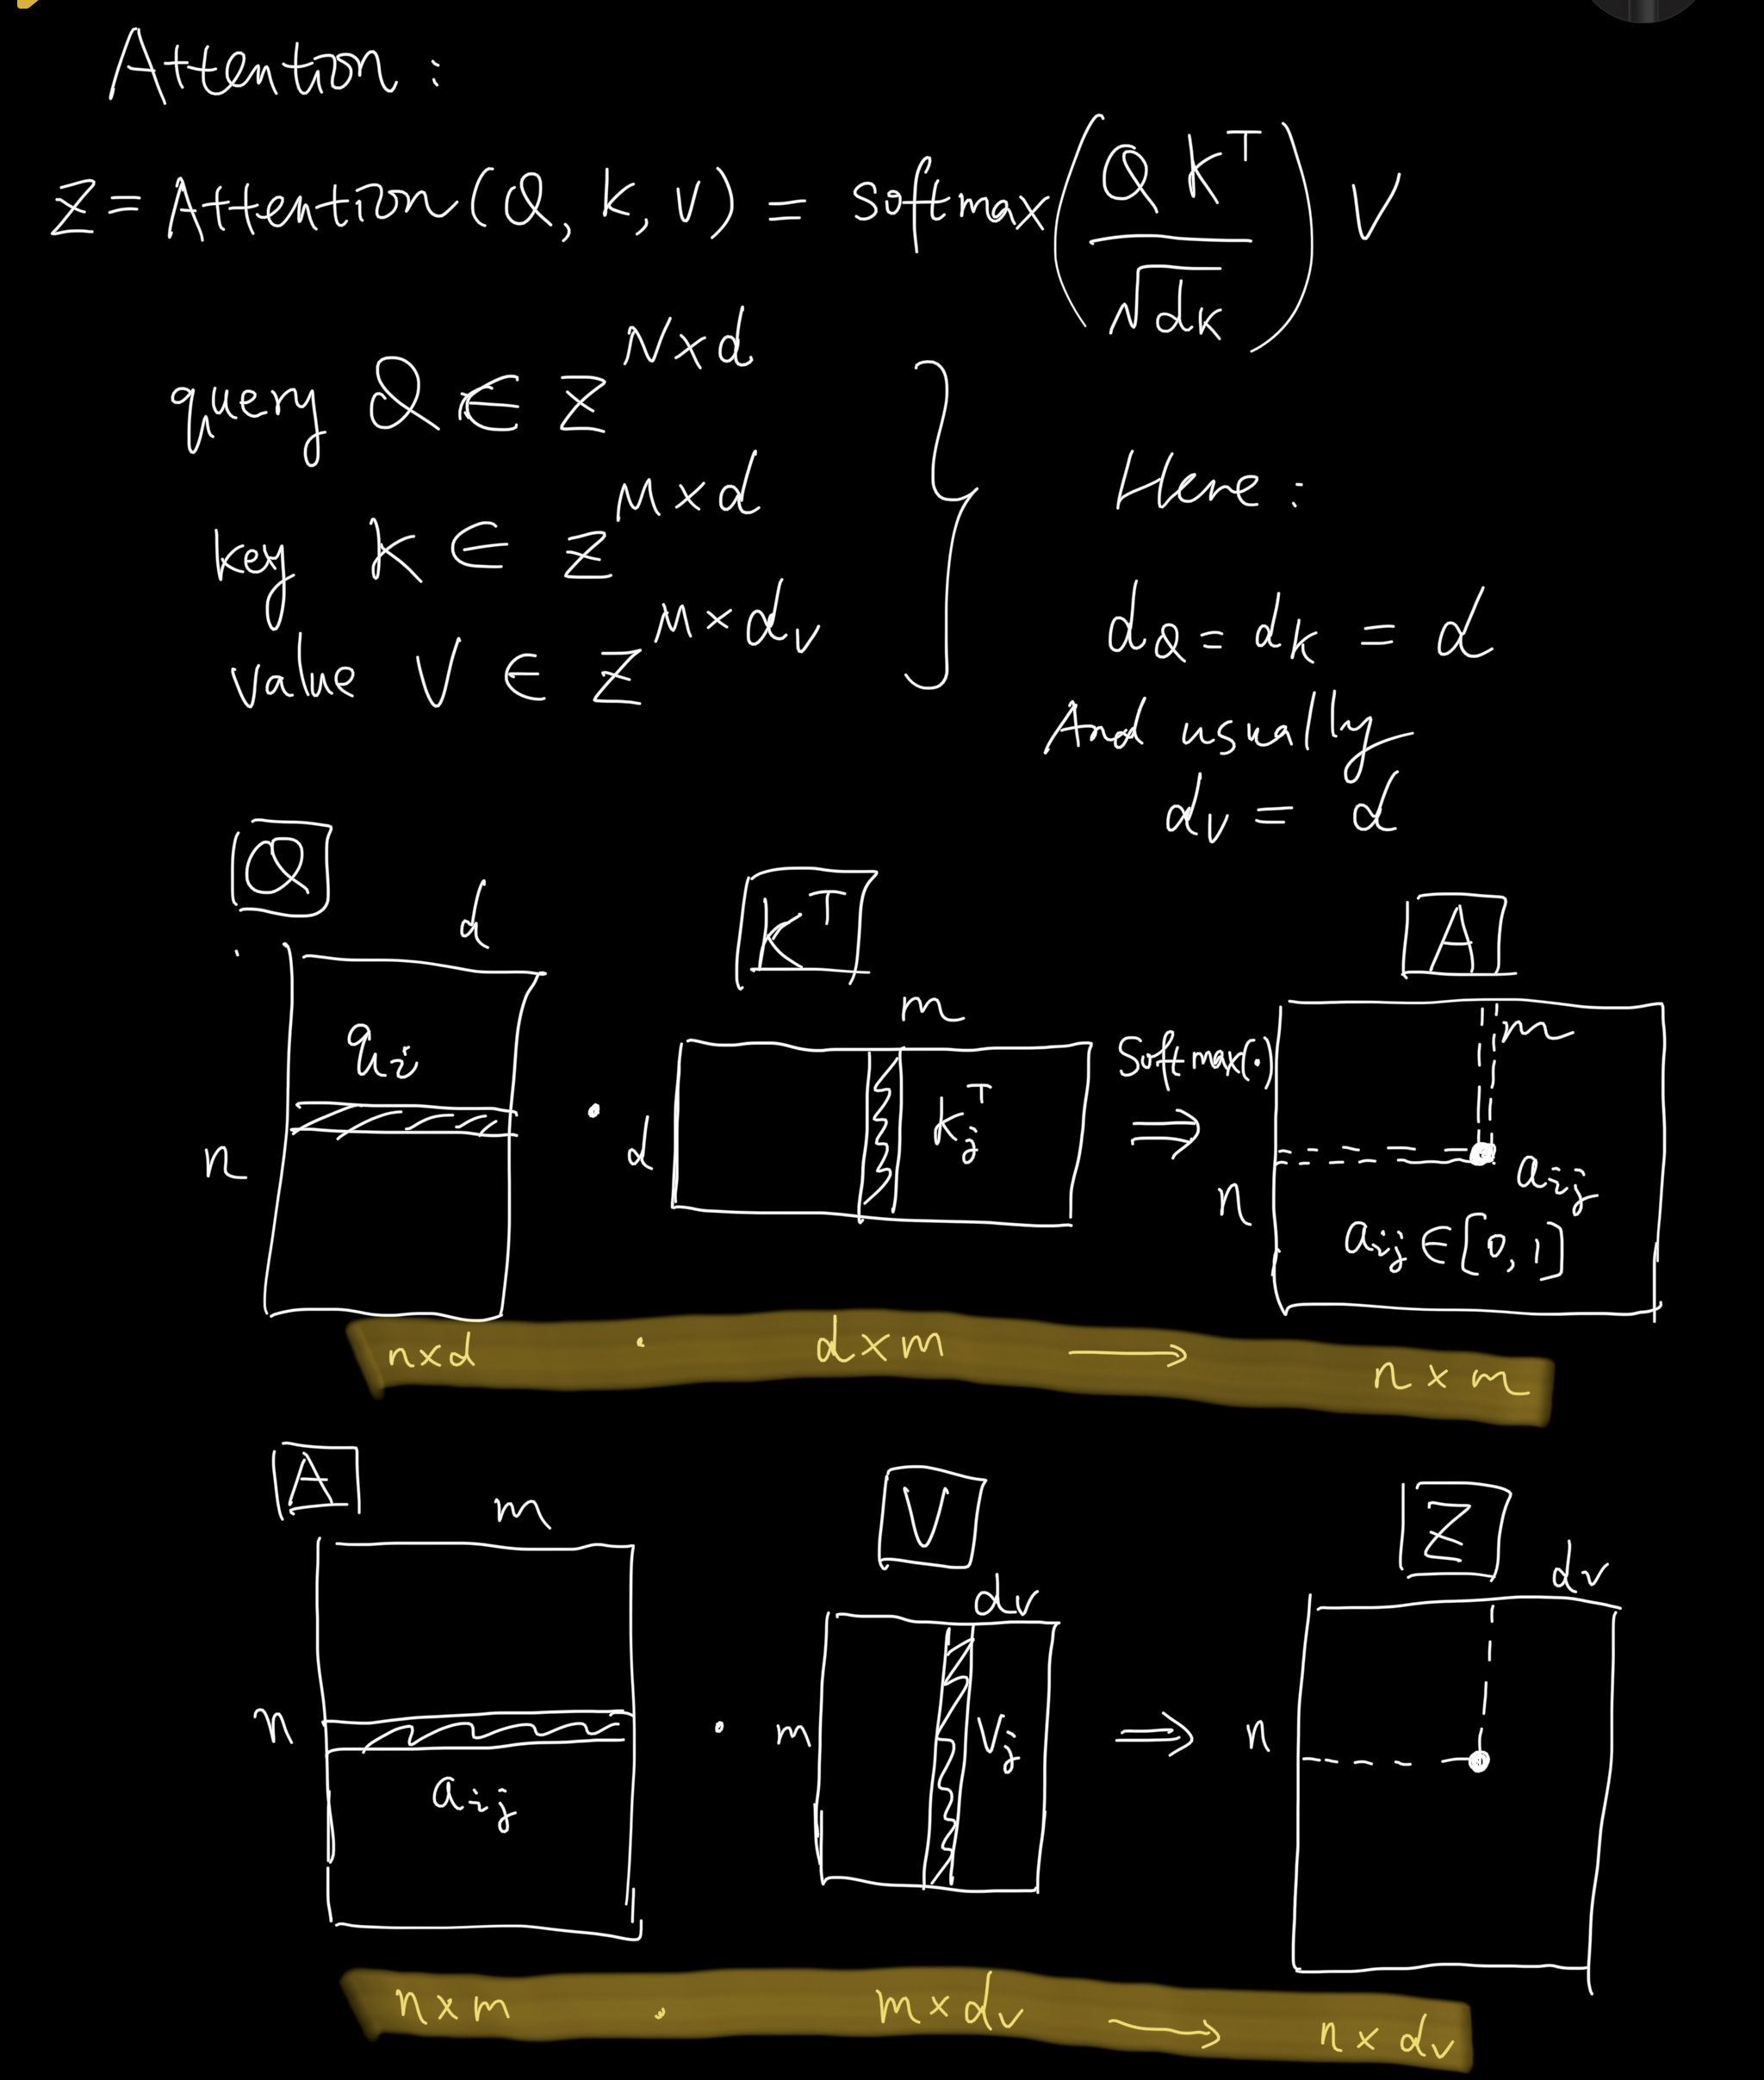 Attention :
Z = Attention(Q, K, V) = Softmax(QK^T / √dk) V
query Q ∈ Z^{N×d}
key K ∈ Z^{M×d}
value V ∈ Z^{M×dv}
Here :
dQ = dk = d
And usually
dv = d
Q
d
qi
n
·
K^T
m
d
kj^T
Softmax(·)
⇒
A
m
n
aij
aij ∈ [0, 1]
n×d · d×m → n×m
A
m
n
aij
·
V
dv
m
Vj
⇒
Z
dv
n
n×m · m×dv → n×dv